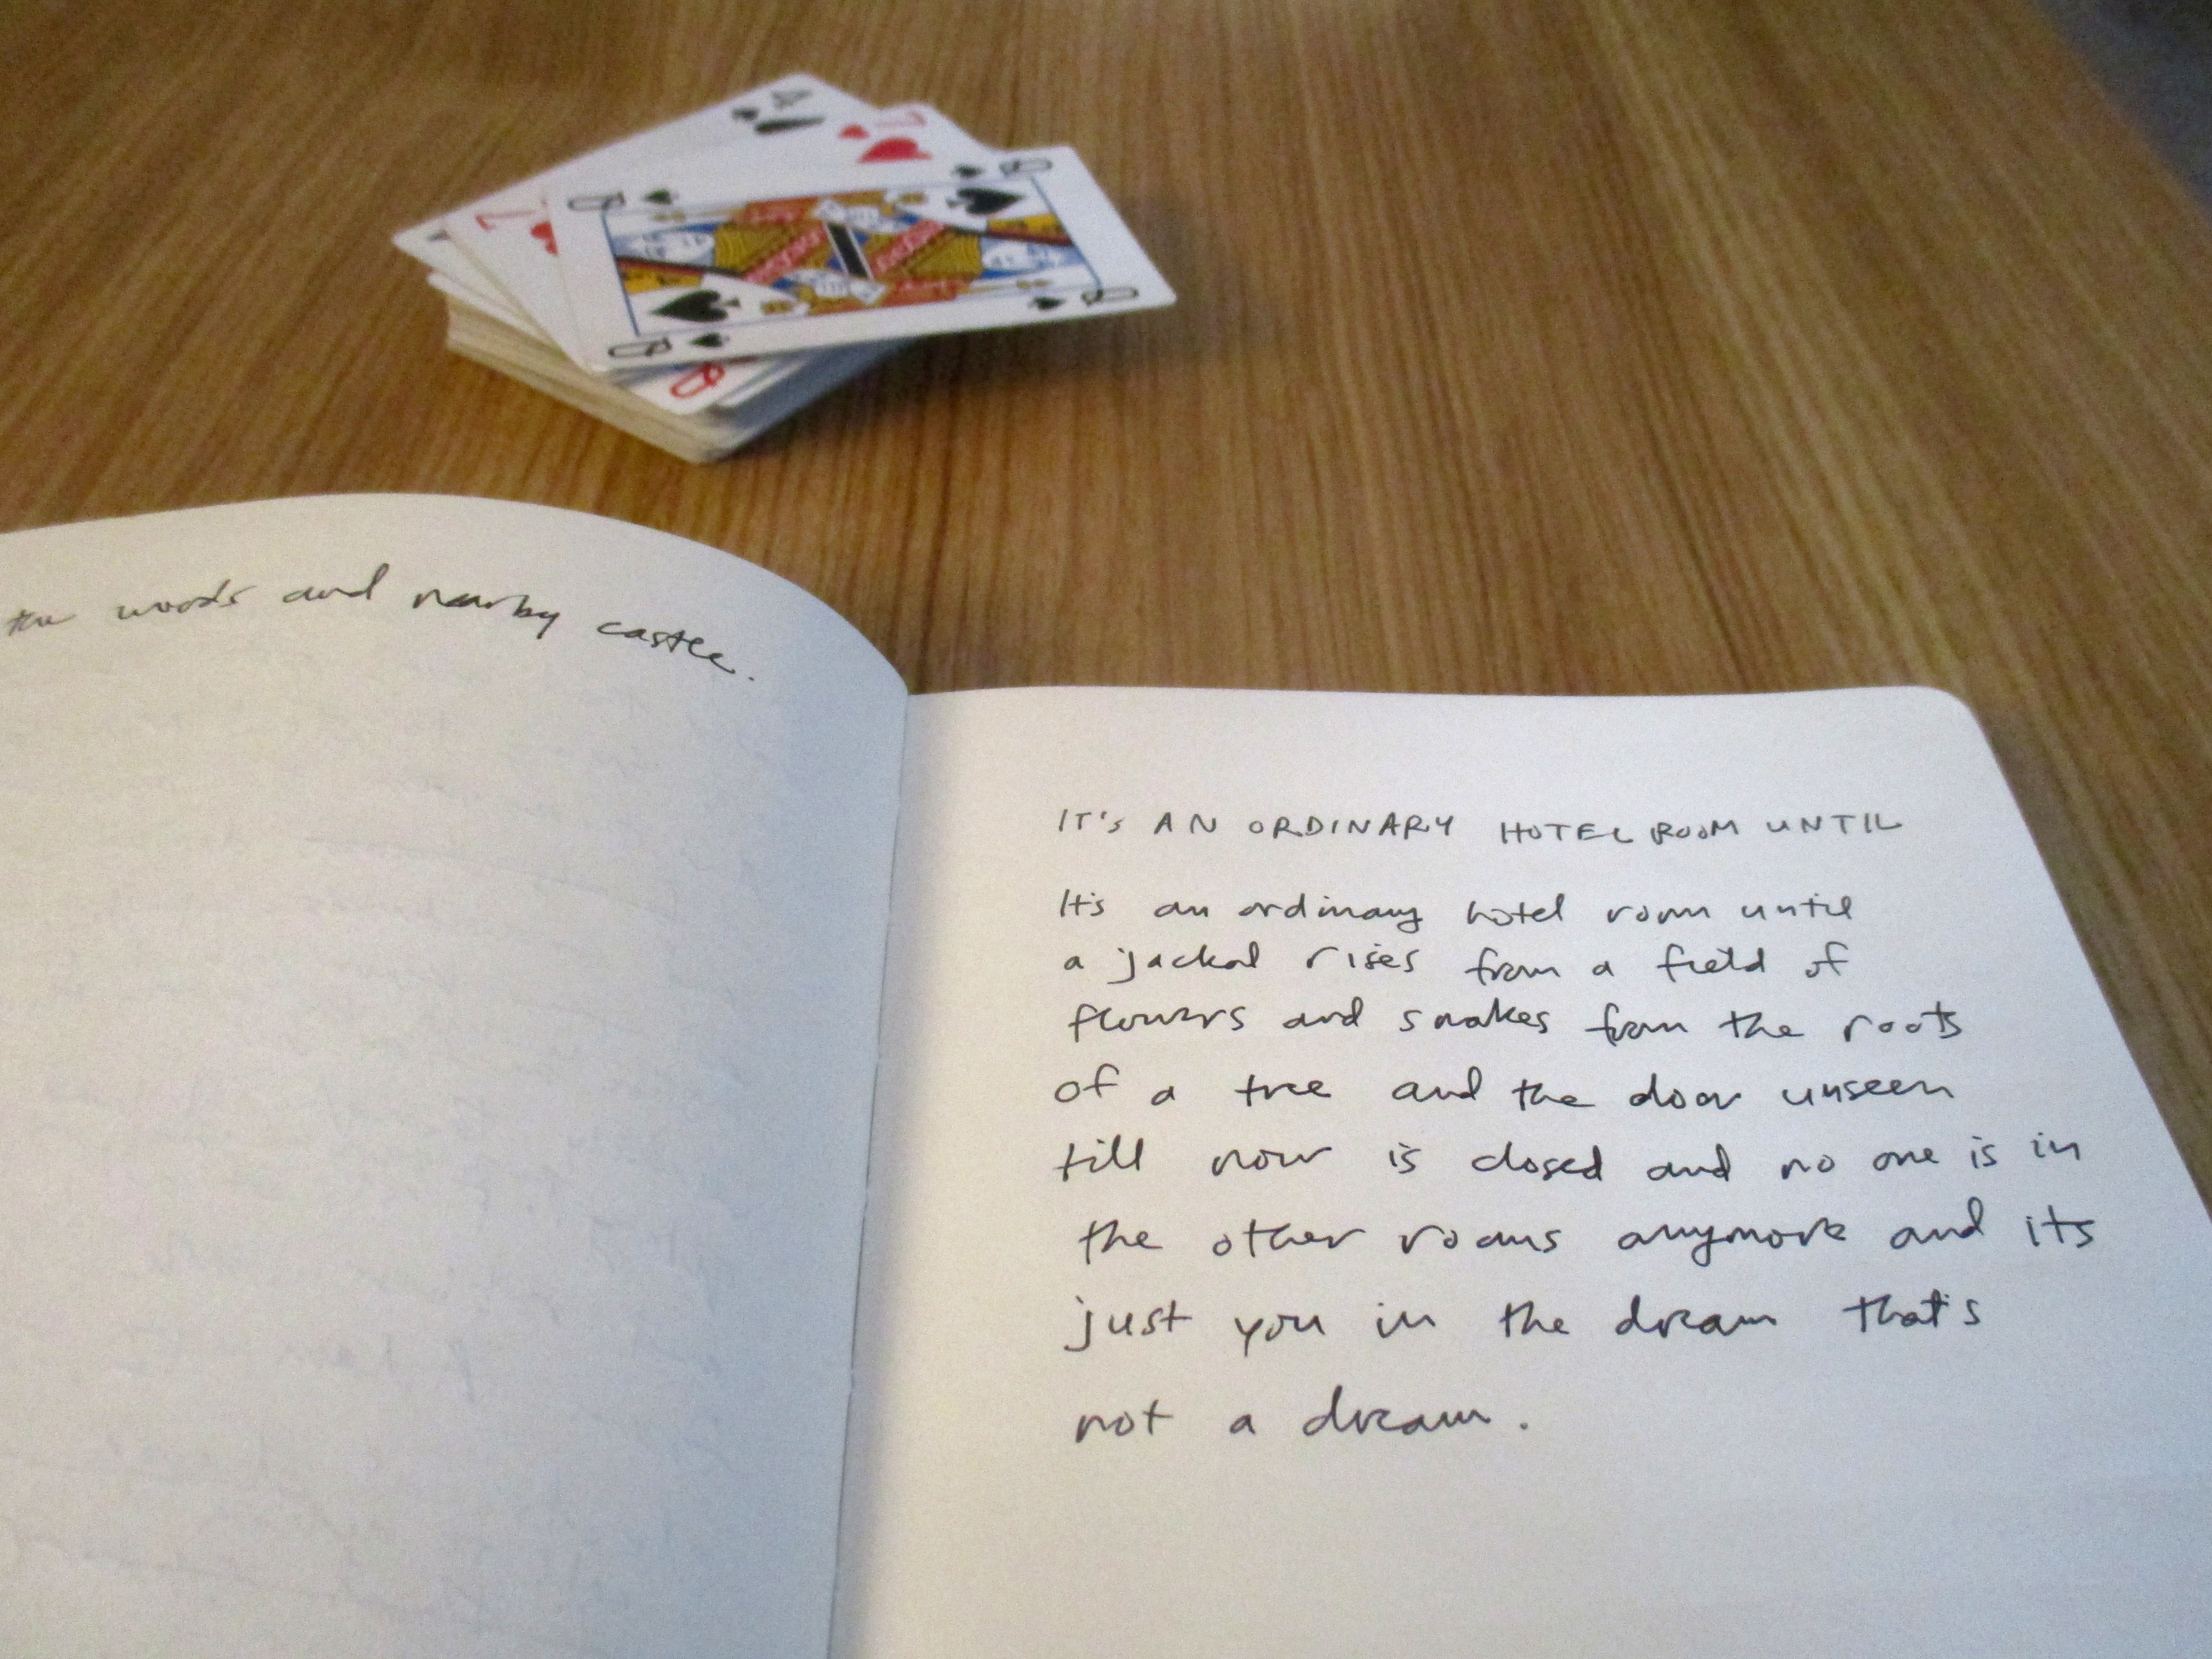 4
7
Q
Q
7
Q
Q
Q
the woods and nearby castle.
IT'S AN ORDINARY HOTEL ROOM UNTIL
It's an ordinary hotel room until
a jackal rises from a field of
flowers and snakes from the roots
of a tree and the door unseen
till now is closed and no one is in
the other rooms anymore and its
just you in the dream that's
not a dream.